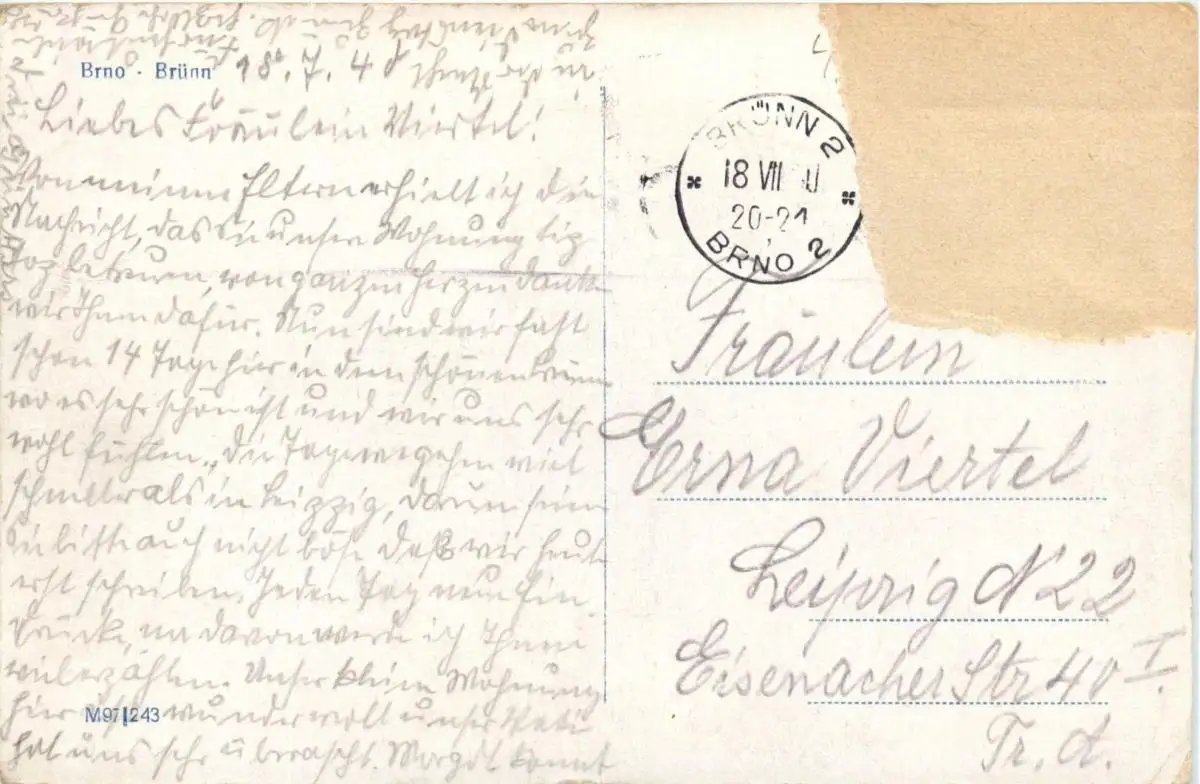 Brno · Brünn
18.7.40
Liebes Fräulein Viertel!
Von meinen Eltern erhielt ich die
Nachricht, das sie unser Wohnung
betreuen, von ganzen Herzen dank
wir Ihnen dafür. Nun sind wir fast
schon 14 Tage hier in dem schönen Brünn
wo es sehr schön ist und wir uns sehr
wohl fühlen. die Tage vergehen viel
schneller als in Leipzig, darum sein
Sie bitte auch nicht böse daß wir heute
erst schreiben. Jeden Tag neue Ein
drücke, na davon werde ich Ihnen
viel erzählen. Unser kleine Wohnung
hier wundervoll unser Vati
hat uns sehr überascht. Margit konnt
M97 243
BRÜNN 2
18 VII
20-21
BRNO 2
Fräulein
Erna Viertel
Leipzig N 22
Eisenacher Str 40 I.
Tr. A.